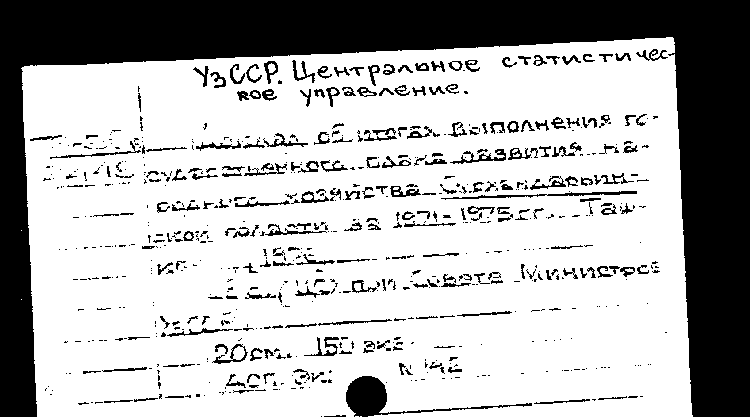 УзССР. Центральное статистичес-
кое управление.
Доклад об итогах выполнения го-
сударственного плана развития на-
родного хозяйства Сурхандарьин-
ской области за 1971-1975 гг. Таш-
1976
с. (ЦСУ при Совете Министров
УзССР)
20 см. 150 экз.
Деп. экз. N 142